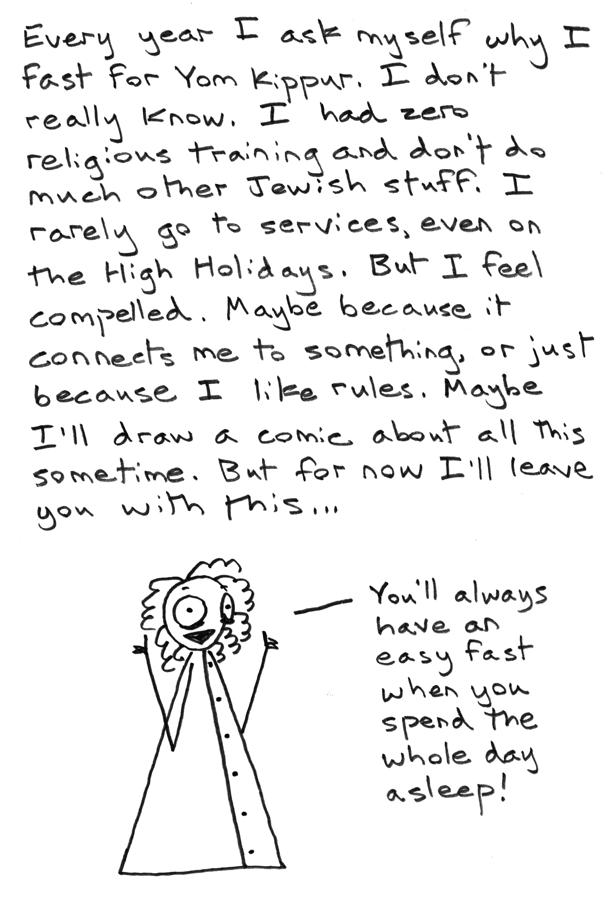 Every year I ask myself why I
fast for Yom Kippur. I don't
really know. I had zero
religious training and don't do
much other Jewish stuff. I
rarely go to services, even on
the High Holidays. But I feel
compelled. Maybe because it
connects me to something, or just
because I like rules. Maybe
I'll draw a comic about all this
sometime. But for now I'll leave
you with this...
You'll always
have an
easy fast
when you
spend the
whole day
asleep!